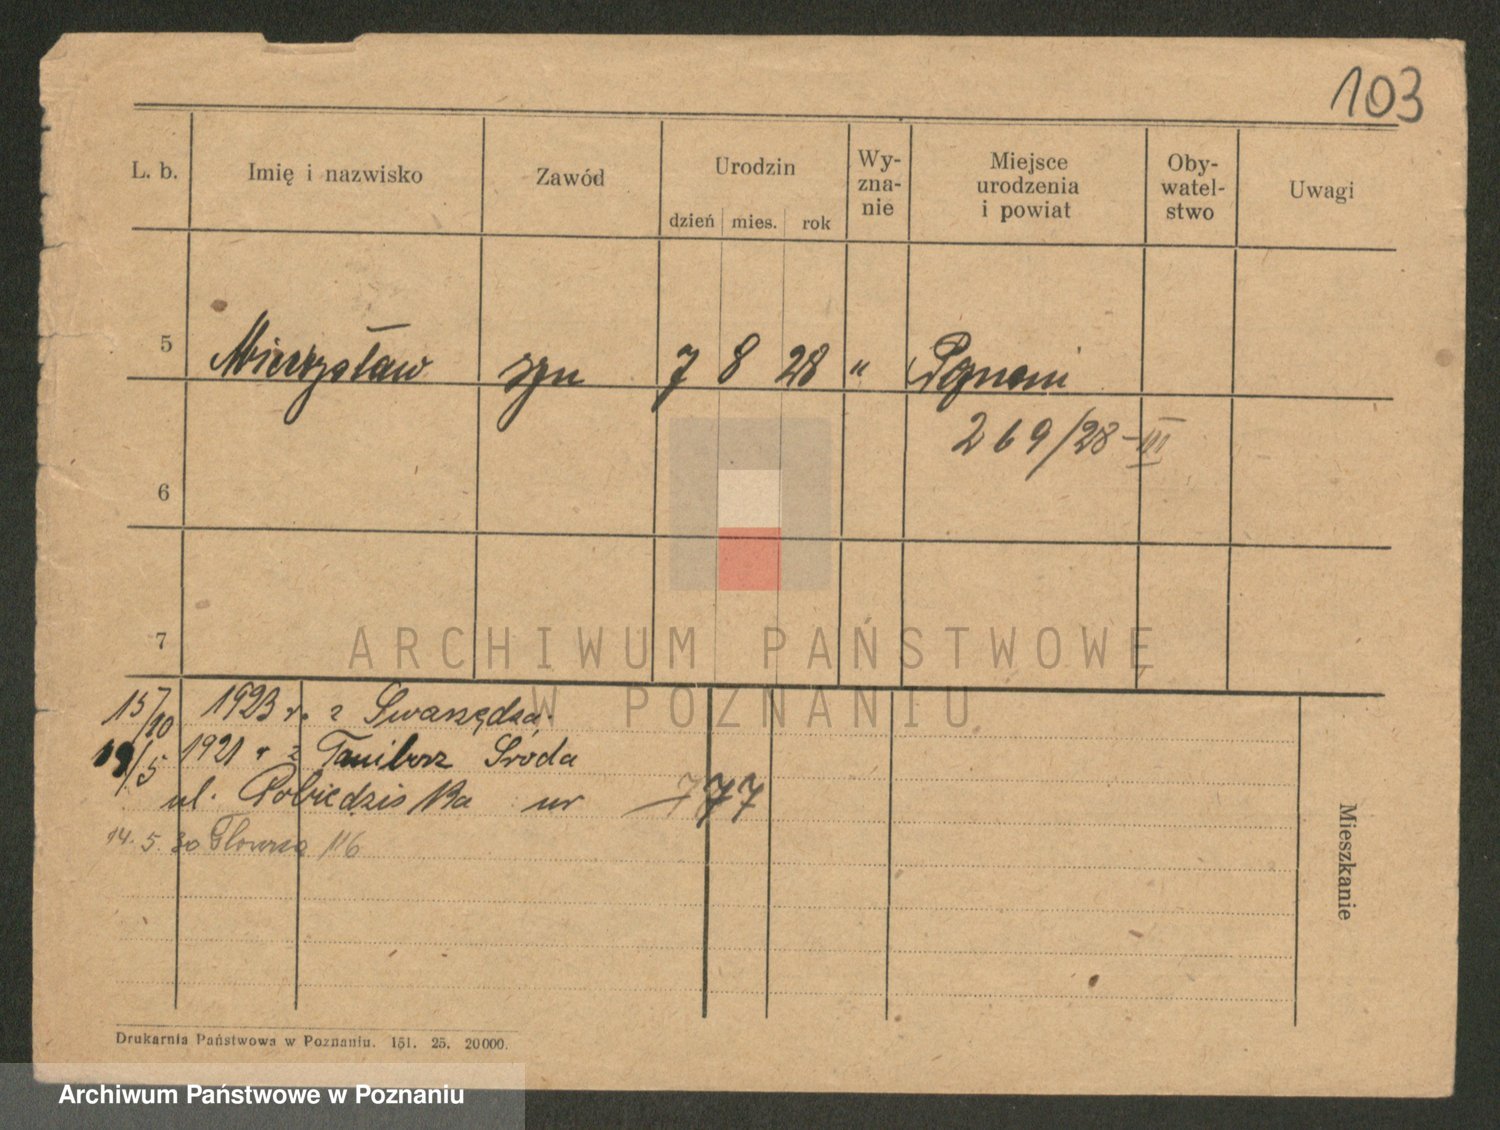 103
L. b. Imię i nazwisko Zawód Urodzin Wy-zna-nie Miejsce urodzenia i powiat Oby-watel-stwo Uwagi
dzień mies. rok
5 Mieczysław syn 7 8 28 " Poznań
269/28-III
6
7
15/10 1923 r. z Swarzędza.
19/5 1921 r z Środa
ul. Pobiedziska nr 77
14. 5. 30 Główna 116
Mieszkanie
Drukarnia Państwowa w Poznaniu. 151. 25. 20000.
ARCHIWUM PAŃSTWOWE
W POZNANIU
Archiwum Państwowe w Poznaniu